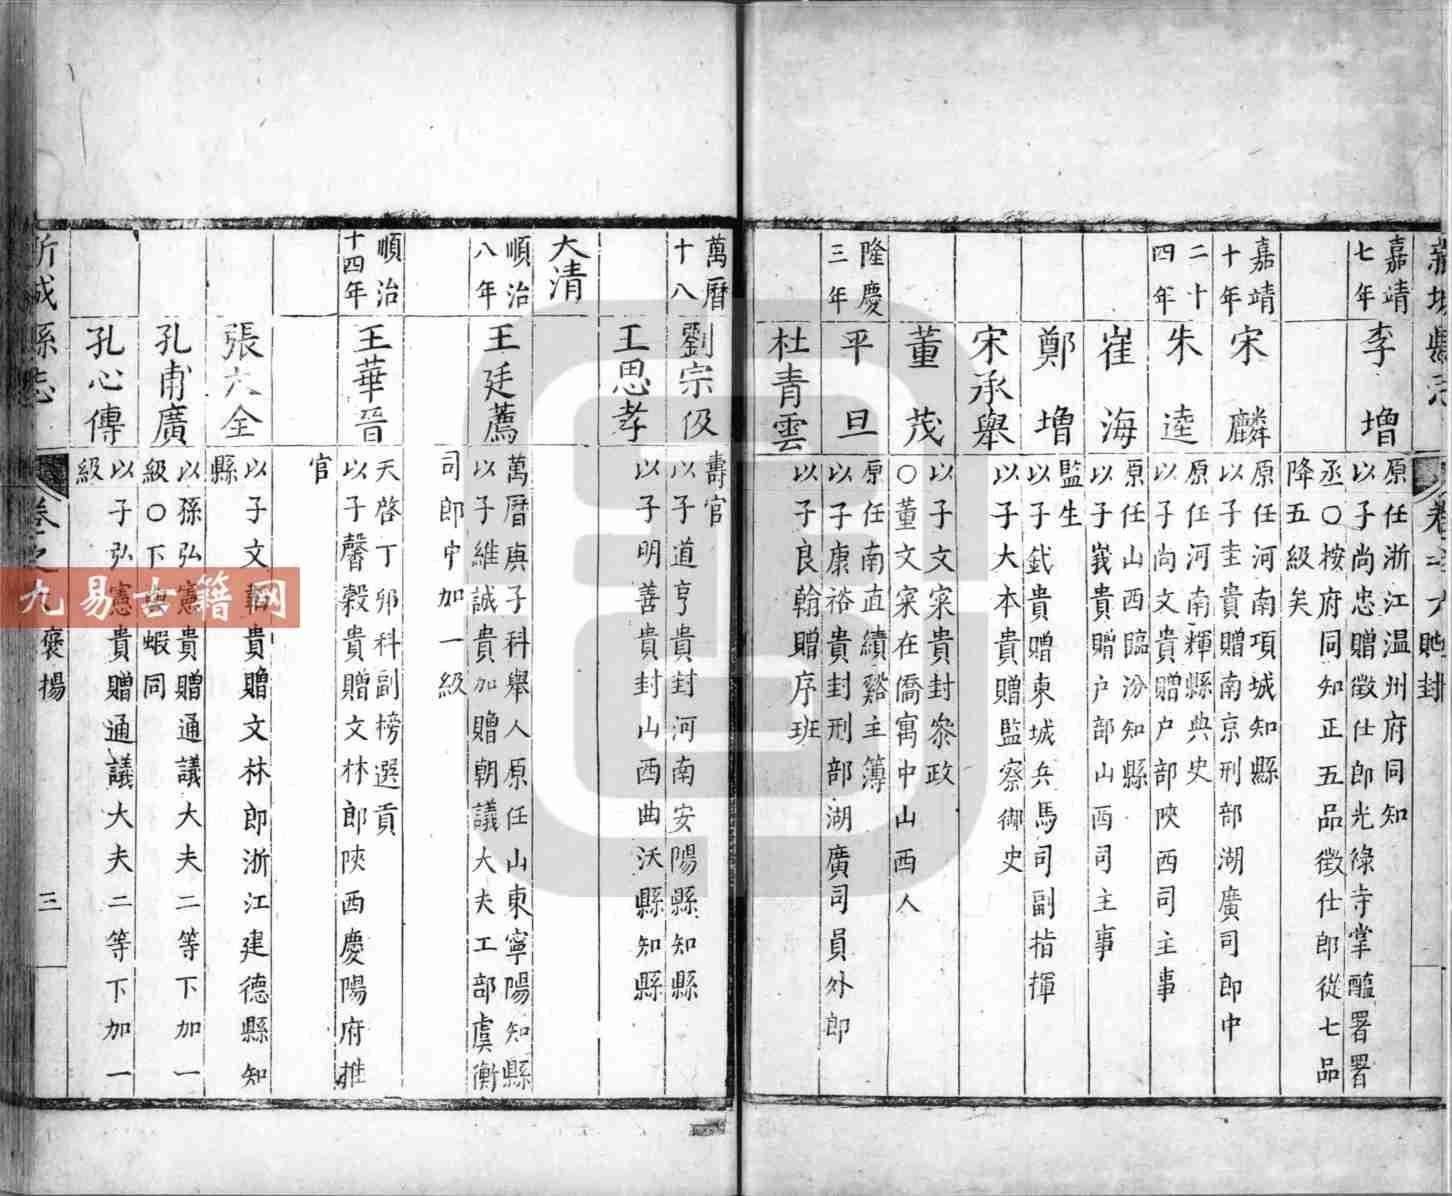 嘉靖
七年
李增
原任浙江温州府同知
以子尚忠贈徵仕郎光祿寺掌醢署署
丞○按府同知正五品徵仕郎從七品
降五級矣
嘉靖
十年
宋麟
原任河南項城知縣
以子圭貴贈南京刑部湖廣司郎中
二十
四年
朱逵
原任河南輝縣典史
以子尚文貴贈户部陝西司主事
崔海
原任山西臨汾知縣
以子義貴贈户部山西司主事
鄭增
監生
以子鉞貴贈東城兵馬司副指揮
宋承舉
以子大本貴贈監察御史
董茂
以子文寀貴封叅政
○董文寀在僑寓中山西人
隆慶
三年
平旦
原任南直績谿主簿
以子康裕貴封刑部湖廣司員外郎
杜青雲
以子良翰贈序班
萬曆
十八
劉宗伋
壽官
以子道亨貴封河南安陽縣知縣
王思孝
以子明善貴封山西曲沃縣知縣
大清
順治
八年
王廷薦
萬曆庚子科舉人原任山東寧陽知縣
以子維誠貴加贈朝議大夫工部虞衡
司郎中加一級
順治
十四年
王華晉
天啓丁夘科副榜選貢
以子馨穀貴贈文林郎陝西慶陽府推
官
張大全
以子文韜貴贈文林郎浙江建德縣知
縣
孔甫廣
以孫弘憲貴贈通議大夫二等下加一
級○下與蝦同
孔心傳
以子弘憲貴贈通議大夫二等下加一
級
新城縣志
卷之
褒揚
三
九易古籍网